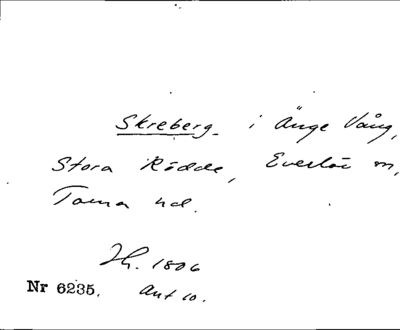 Skreberg i Änge Vång,
Stora Rödde, Everlöv sn,
Torna hd.
Jh. 1806
Nr 6235. Akt 10.